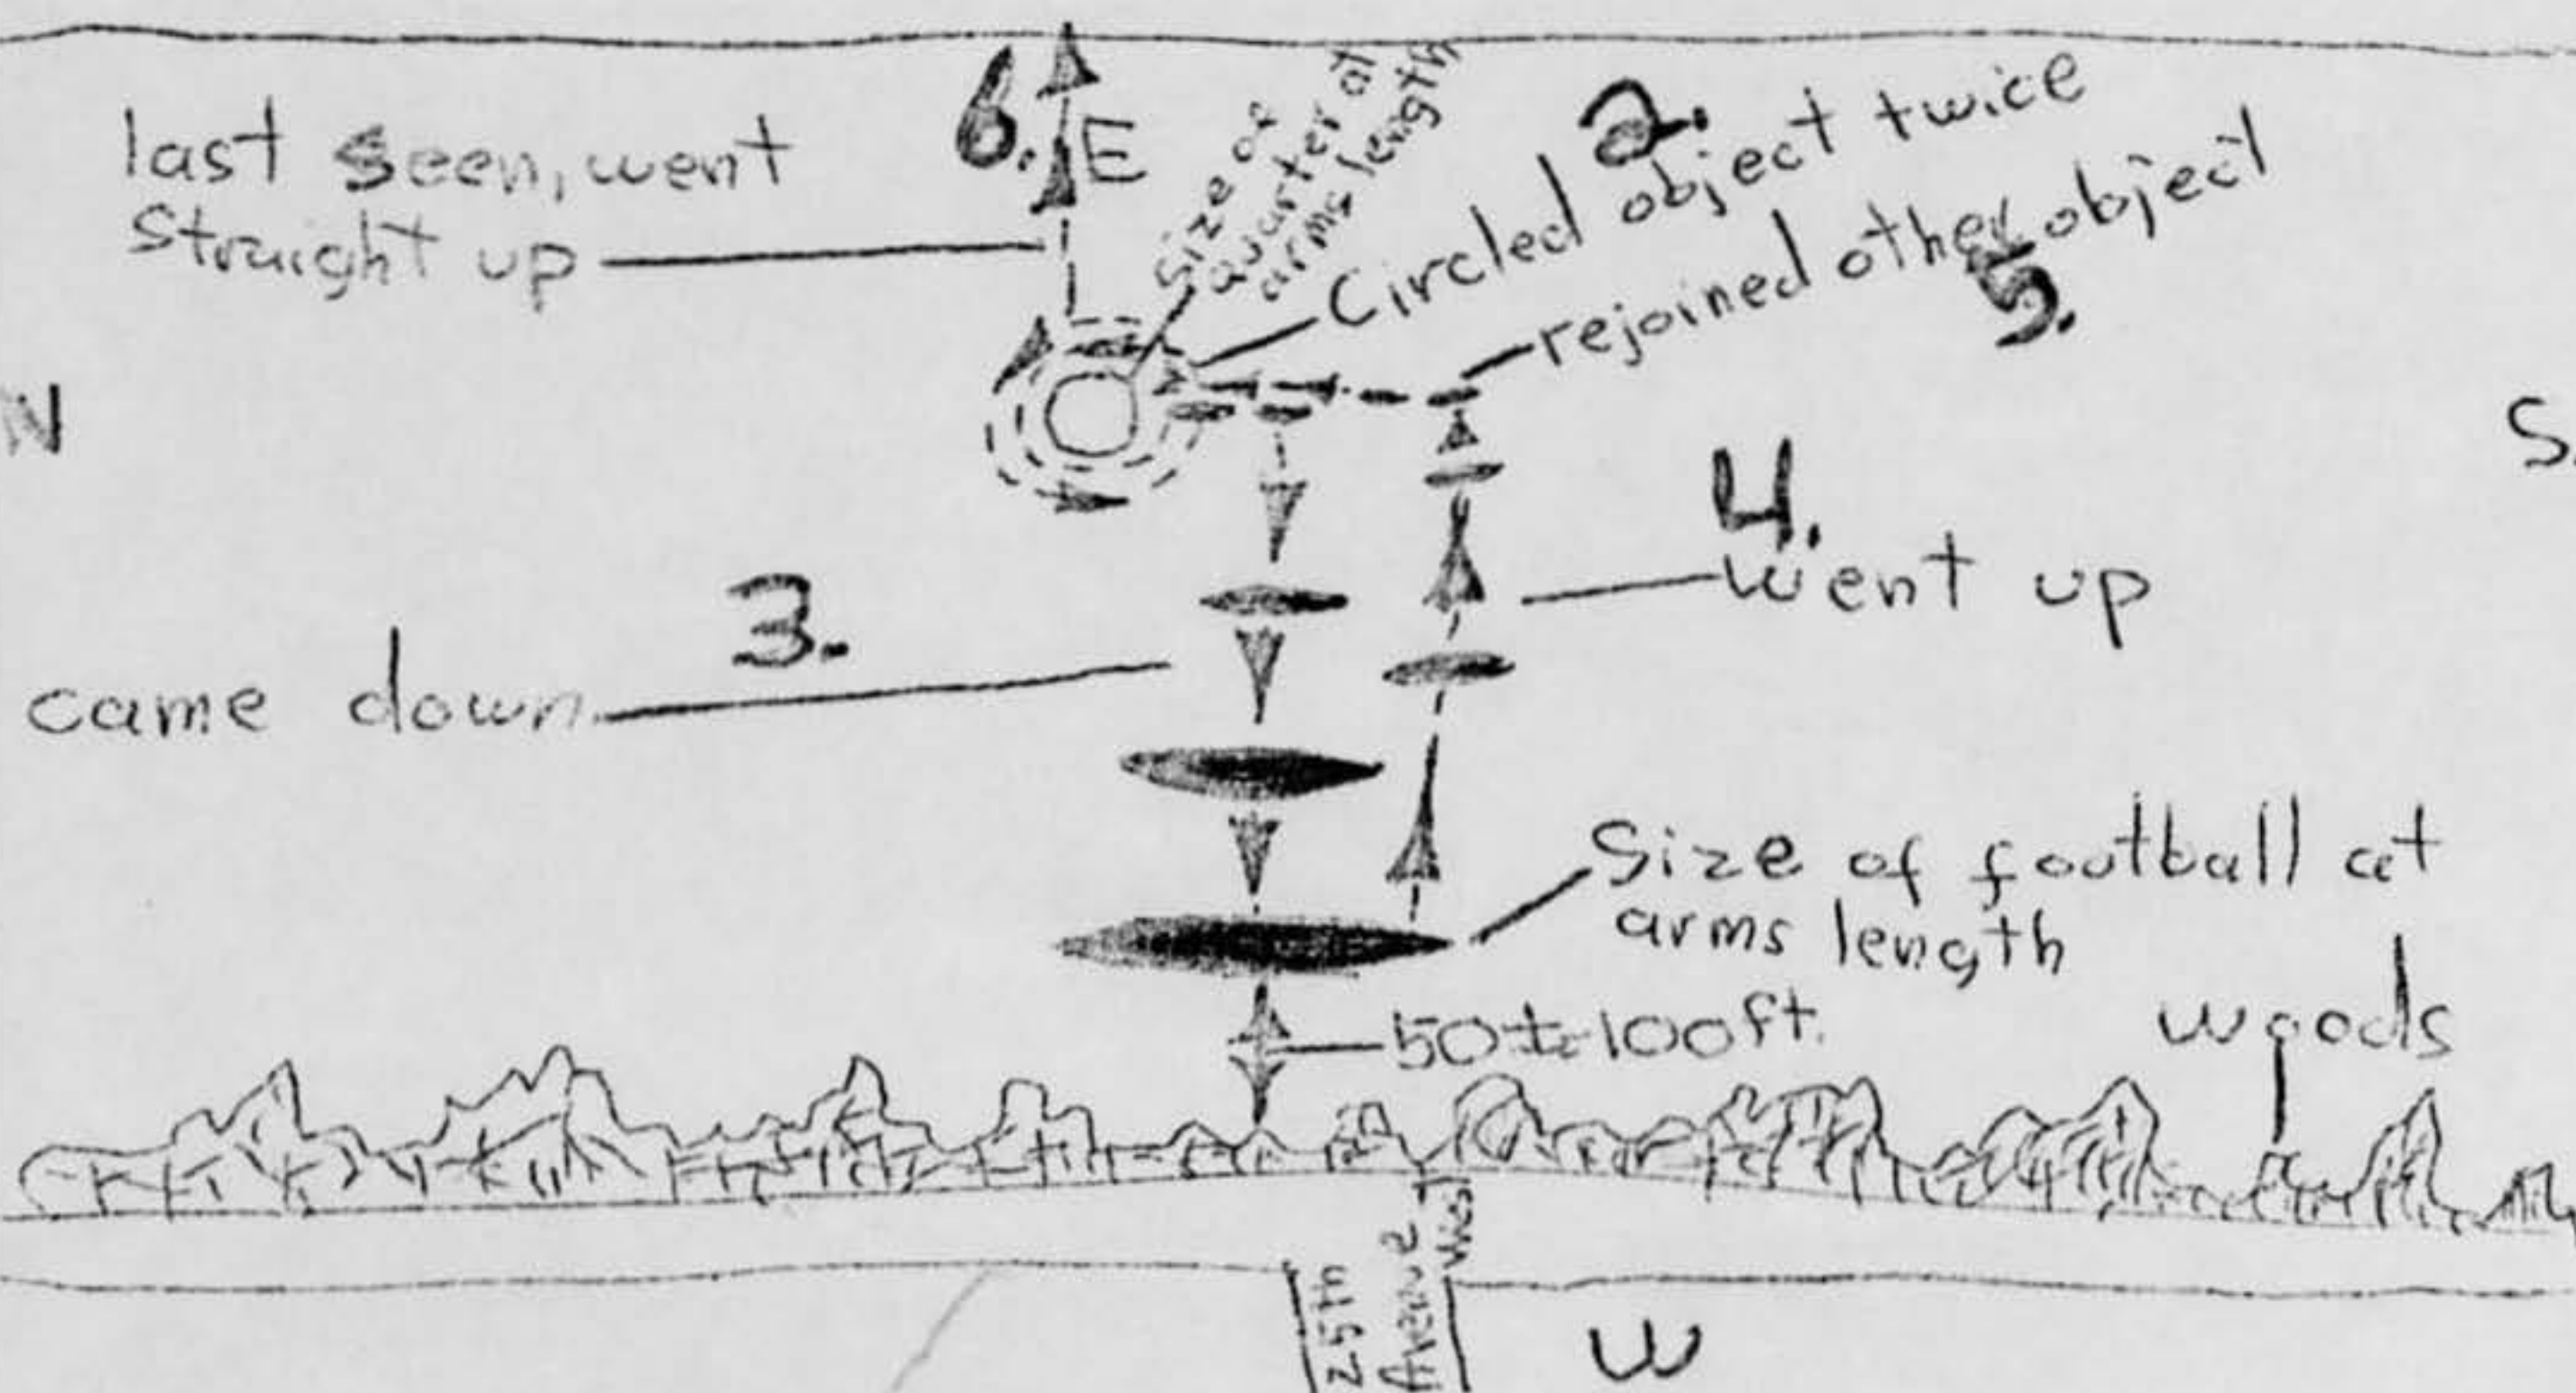 6.
E
last seen, went
straight up
size of
quarter at
arms length
2.
Circled object twice
rejoined other object
5.
N
S.
4.
went up
3.
came down
Size of football at
arms length
50 to 100 ft.
woods
25th
Avenue
West
W